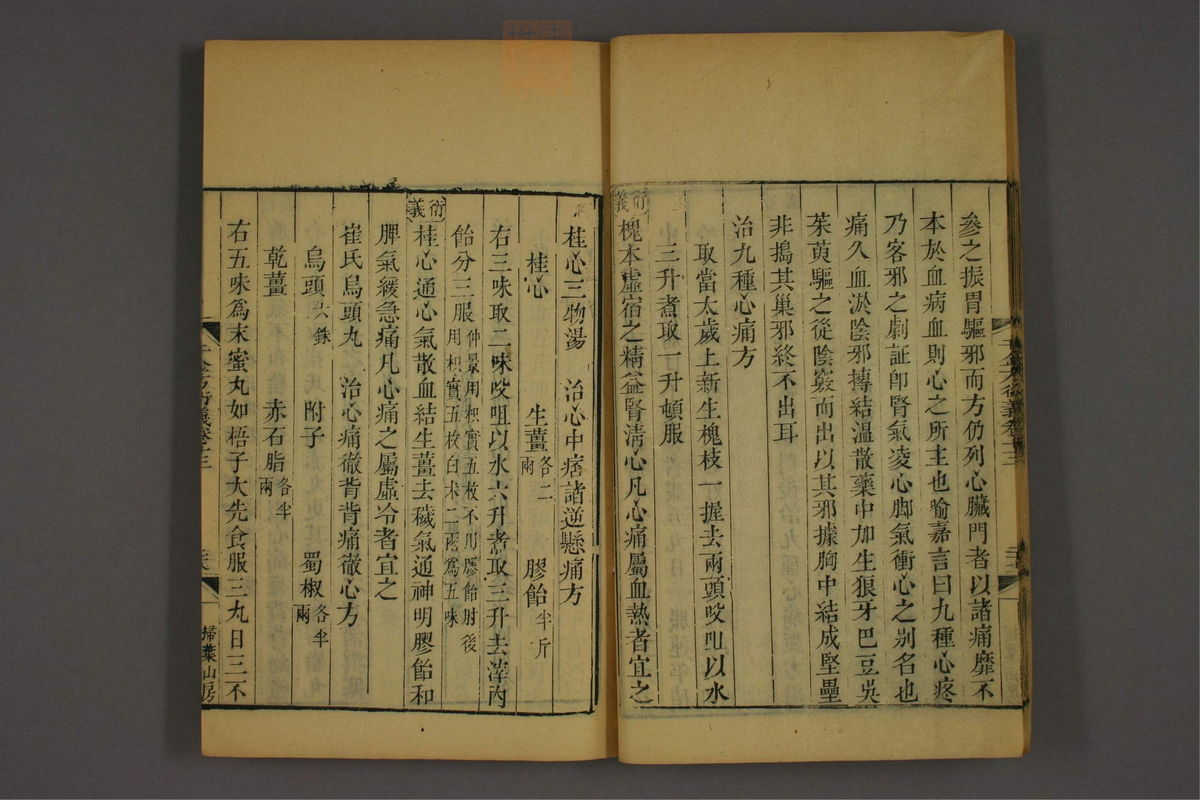 參之振胃驅邪而方仍列心臟門者以諸痛靡不
本於血病血則心之所主也喻嘉言曰九種心疼
乃客邪之劇証即腎氣凌心脚氣衝心之别名也
痛久血淤陰邪摶結溫散藥中加生狼牙巴豆吳
茱萸驅之從陰竅而出以其邪據胸中結成堅壘
非搗其巢邪終不出耳
治九種心痛方
取當太歲上新生槐枝一握去兩頭㕮咀以水
三升煮取一升頓服
衍義 槐本虛宿之精益腎淸心凡心痛屬血熱者宜之
桂心三物湯 治心中痞諸逆懸痛方
桂心 生薑各二兩 膠飴半斤
右三味取二味㕮咀以水六升煮取三升去滓內
飴分三服仲景用枳實五枚不用膠飴肘後
用枳實五枚白术二兩爲五味
衍義 桂心通心氣散血結生薑去穢氣通神明膠飴和
脾氣緩急痛凡心痛之屬虛冷者宜之
崔氏烏頭丸 治心痛徹背背痛徹心方
烏頭六銖 附子 蜀椒各半兩
乾薑 赤石脂各半兩
右五味爲末蜜丸如梧子大先食服三丸日三不
千金方衍義卷十三
掃葉山房